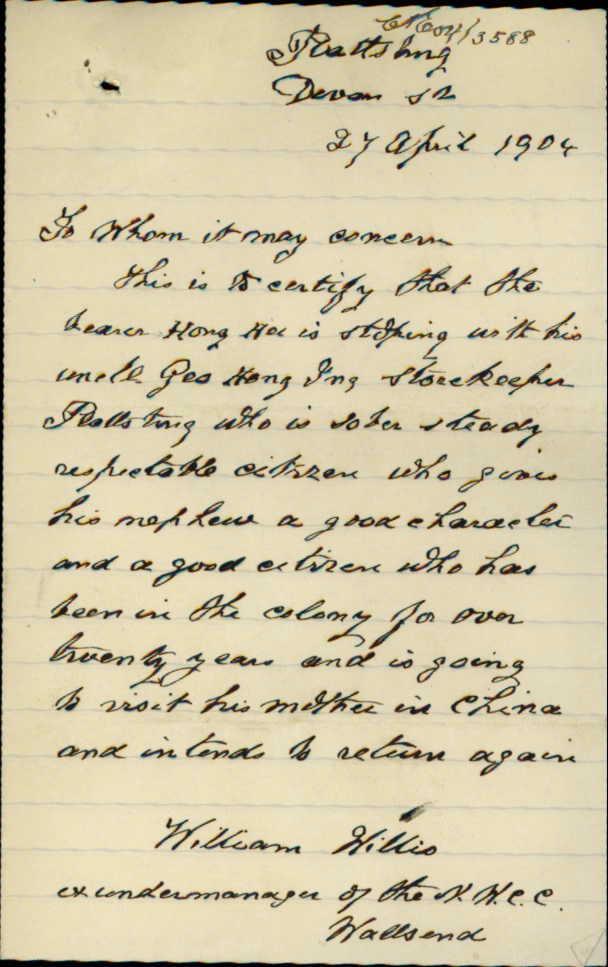 04/3588
Plattsburg
Devon St
27 April 1904
To Whom it may concern
This is to certify that the
bearer Hong Hee is stoping with his
uncle Geo Hong Ing Storekeeper
Plattsburg who is sober steady
respectable citizen who gives
his nephew a good character
and a good citizen who has
been in the colony for over
twenty years and is going
to visit his mother in China
and intends to return again
William Willis
ex undermanager of the N. W. C. C.
Wallsend